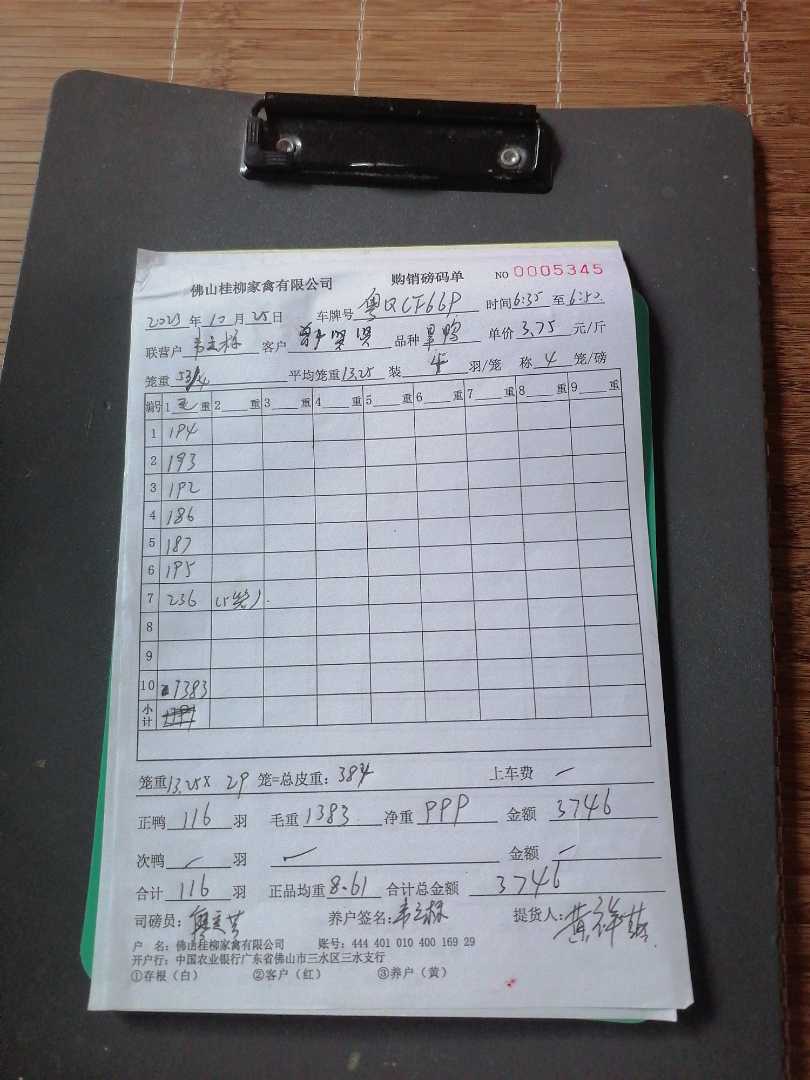 佛山桂柳家禽有限公司 购销磅码单 NO 0005345
2023年10月25日 车牌号 粤QCF669 时间6:35至6:50
联营户 韦立标 客户 品种 单价 3.75 元/斤
笼重 53/4 平均笼重13.25 装 4 羽/笼 称 4 笼/磅
编号 1 毛 重 2 重 3 重 4 重 5 重 6 重 7 重 8 重 9 重
1 194
2 193
3 192
4 186
5 187
6 195
7 236 (5笼)
8
9
10 1383
小计
笼重13.25X 29 笼=总皮重:384 上车费 —
正鸭 116 羽 毛重 1383 净重 999 金额 3746
次鸭 — 羽 — 金额 —
合计 116 羽 正品均重 8.61 合计总金额 3746
司磅员: 养户签名: 韦立标 提货人:
户 名: 佛山桂柳家禽有限公司 账号: 444 401 010 400 169 29
开户行: 中国农业银行广东省佛山市三水区三水支行
①存根（白） ②客户（红） ③养户（黄）